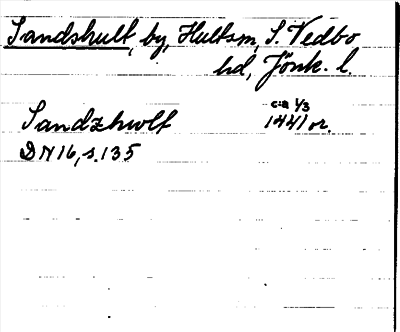 Sandshult, by, Hultsm, S. Vedbo
hd, Jönk. l.
Sandzhwlt
c:a 1/3
1441 or.
DN 16, s. 135